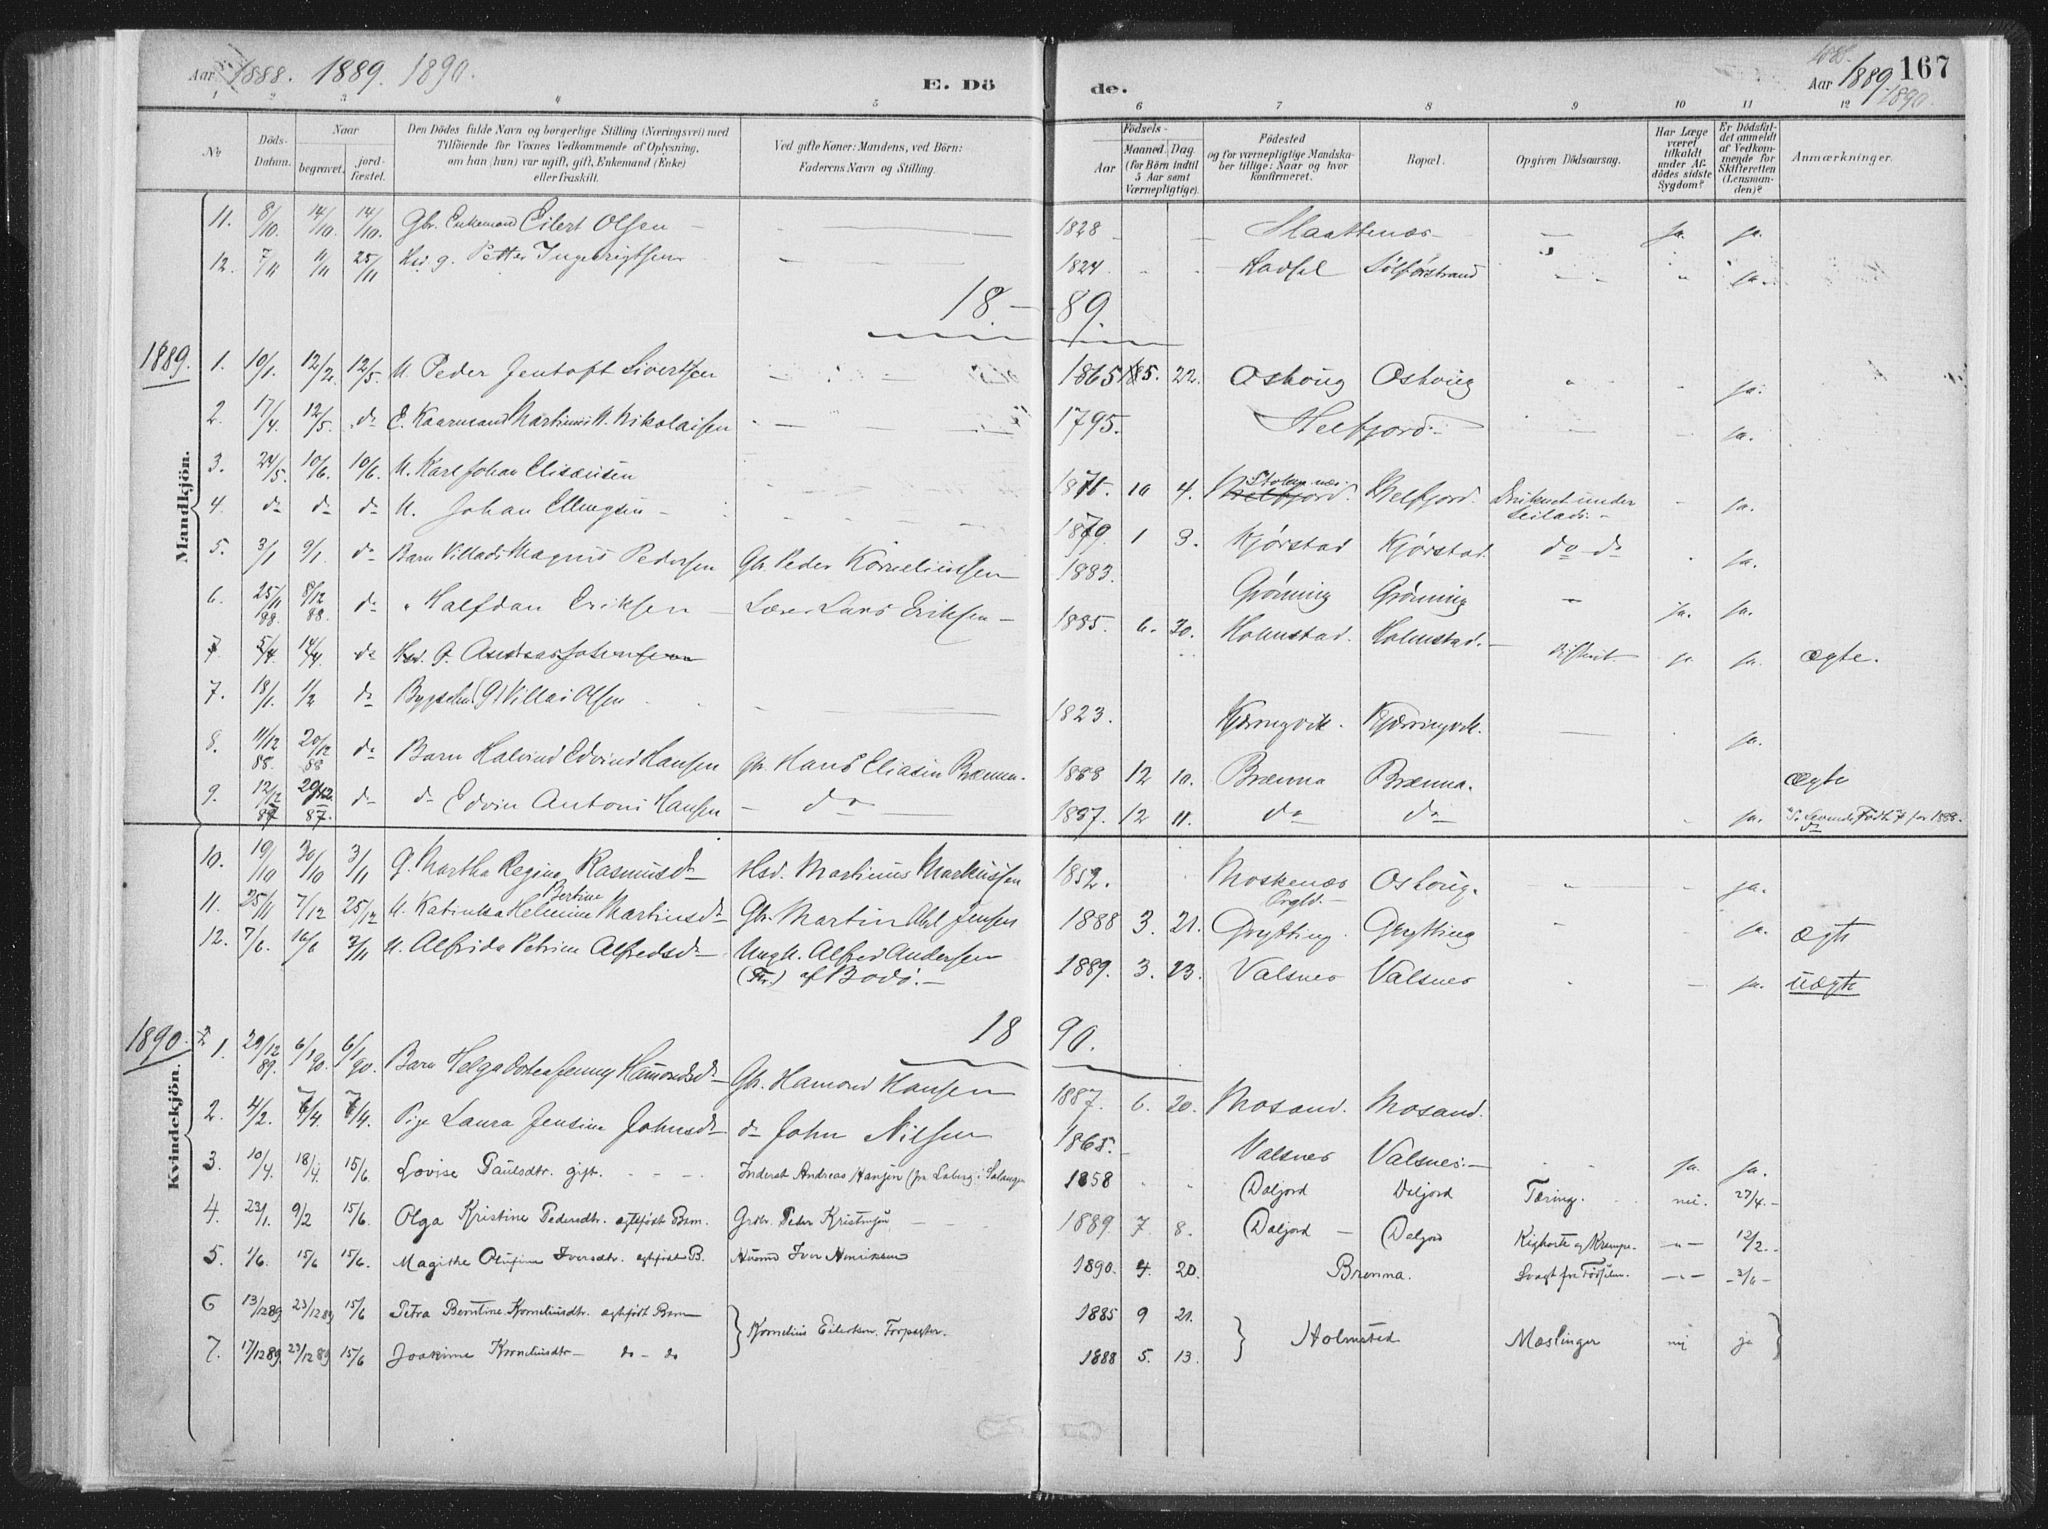 Aar 1888. 1889. 1890.
E. Dö
de.
1888.
Aar 1889 167
1890.
1 2 3 4 5 6 7 8 9 10 11 12
No
Döds-Datum.
Naar
begravet.
jord-fæstet.
Den Dödes fulde Navn og borgerlige Stilling (Næringsvei) med
Tilföiende for Voxnes Vedkommende af Oplysning,
om han (hun) var ugift, gift, Enkemand (Enke)
eller fraskilt.
Ved gifte Koner: Mandens, ved Börn:
Faderens Navn og Stilling.
Födsels-
Aar
Maaned. Dag
(for Börn indtil
5 Aar samt
Værnepligtige).
Födested
og for værnepligtige Mandska-
ber tillige: Naar og hvor
konfirmeret.
Bopæl.
Opgiven Dödsaarsag.
Har Læge
været
tilkaldt
under Af-
dödes sidste
Sygdom?
Er Dödsfal-
det anmeldt
af Vedkom-
mende for
Skifteretten
(Lensman-
den)?
Anmærkninger.
Mandkjön.
11. 8/10. 14/10. 14/10 Gbr. Enkemand Eilert Olsen — 1828 Slaattenæs — ja. ja.
12. 7/11 11/11 25/11 Hsd g. Petter Ingebrigtsen 1824 Hadsel Sølførstrand ja.
18 — 89.
1889.
1. 10/1. 12/2. 12/5. U. Peder Jentoft Sivertsen 1865 5. 22. Osvoug Osvoug ja.
2. 17/4. 12/5. do E. Kaarmand Martinus N. Nikolaisen 1795. Helfjord. ja.
3. 24/5. 10/6. 10/6. U. Karl Johan Elisæusen 1871. 10 4. Stokmnæs Helfjord. Druknet under Seilads. ja.
4. do do do U. Johan Ellingsen 1879. 1 3. Kjørstad Kjørstad. do do ja.
5. 3/1 9/1 do Barn Villads Magnus Pedersen Gbr. Peder Korneliussen 1883. Grønning Grønning ja. ja.
6. 25/11 88. 8/12 88. do " Halfdan Eriksen — Lærer Lars Eriksen 1885. 6. 30. Holmstad. Holmstad. Difterit. ja ja. ægte.
7 5/4 14/4 do Hsd. G. Andreas Johansen
7. 18/1 1/2 do Bygselm (G) Villas Olsen 1823. Kjerringvik. Kjerringvik. ja.
8. 11/12 88. 20/12 88 do Barn Halvind Edvind Hansen Gbr. Hans Eliasen Brænna. 1888 12 10. Brænna Brænna. ægte
9. 12/12 87 29/12 87. do do Edvin Antoni Hansen — do 1887. 12 11. do do ja. do
Kvindekjön.
10. 19/10 30/10 3/11 G. Martha Regine Rasmusdtr Hsd. Martinus Markussen 1852. Moskenæs Prgld. Osvoug. ja.
11. 25/11 7/12 25/12 U. Katinka Helmine Bertine Martinsdtr Gbr. Martin Abel Jensen 1888 3. 21. Grytting. Grytting ja. ægte
12. 7/6. 16/6 3/11 U. Alfrida Petrine Alfredsdtr Ungk. Alfred Andersen
(Fhv.) af Bodø. — 1889. 3. 23. Valsnes Valsnes ja. uægte
18 90.
1890.
1. 29/12 89. 6/1 90. 6/1 90. Barn Helga Dorthea Jenny Hamondsdtr Gbr. Hamond Hansen 1887. 6. 20. Mosand. Mosand.
2. 4/2. 7/4. 7/4. Pige Laura Jensine Johnsdtr do John Nilsen 1865. Valsnes Valsnes. — ja. ja.
3. 10/4. 18/4. 15/6. Lovise Paulsdtr. gift. Inderst Andreas Hansen (fra Laberg i Salangen 1858 Daljord Daljord Tæring. nei. 27/4. —
4. 23/1. 9/2 15/6. Olga Kristine Pedersdtr. ægtefødt Barn. Grdbr. Peder Kristensen 1889. 7. 8. Daljord — Daljord Kighoste og Krampe. — 12/2.
5 1/6. 15/6 15/6. Magithe Olufine Iversdtr. ægtefødt B. Husmd Iver Henriksen 1890. 4. 20. Brenna. Svagt fra Fødselen. — 3/6 —
6 13/12 89 23/12 89 15/6 Petra Berntine Korneliusdtr. ægtefødt Barn } Kornelius Eilertsen. Forpagter. 1885 9 21. } Holmstad Mæslinger nei ja }
7. 17/12 89 23/12 89 15/6 Joakime Korneliusdtr — do — do 1888 5. 13.